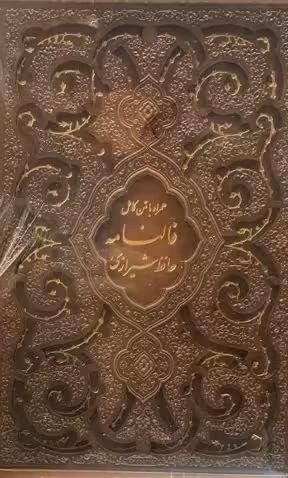 همراه با متن کامل
فالنامه
حافظ شیرازی